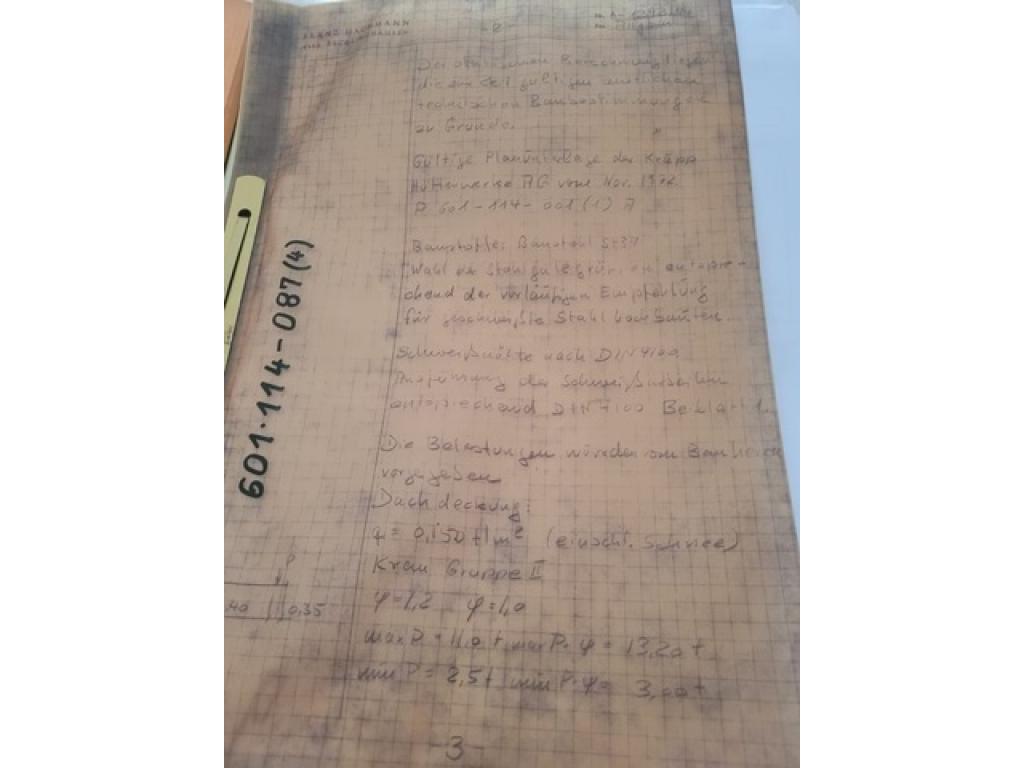 -2-
Der statischen Berechnung liegen
die zur Zeit gültigen amtlichen
technischen Baubestimmungen
zu Grunde.
Gültige Planunterlage der Krupp
Hüttenwerke AG vom Nov. 1972
P 601-114-001(1) A
Baustoffe: Baustahl St37
Wahl der Stahlgütegruppen entspre-
chend der vorläufigen Empfehlung
für geschweißte Stahlbauten.
Schweißnähte nach DIN 4100
Ausführung der Schweißarbeiten
entsprechend DIN 4100 Beiblatt 1.
Die Belastungen wurden vom Bauherrn
vorgegeben
Dachdeckung:
q = 0,150 t/m² (einschl. Schnee)
Kran Gruppe II
φ=1,2 φ=1,0
max P = 11,0 t, max P·φ = 13,20 t
min P = 2,5 t, min P·φ = 3,00 t
-3-
601-114-087(4)
P
,40 0,35